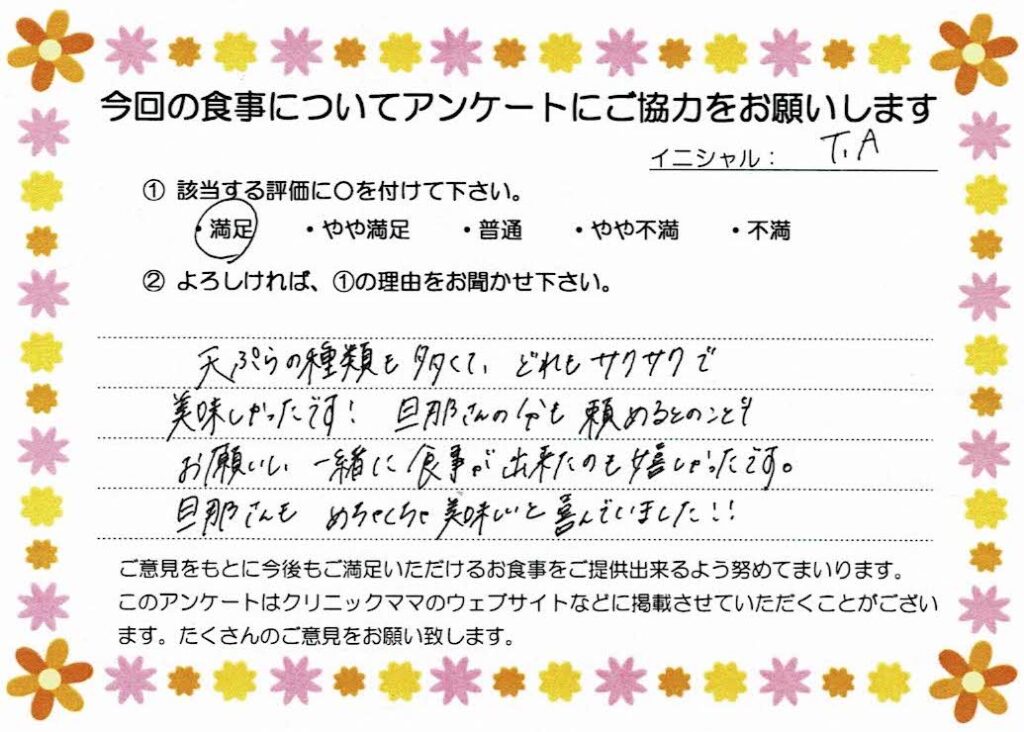 今回の食事についてアンケートにご協力をお願いします
イニシャル： T.A
① 該当する評価に○を付けて下さい。
・満足 ・やや満足 ・普通 ・やや不満 ・不満
② よろしければ、①の理由をお聞かせ下さい。
天ぷらの種類も多くて、どれもサクサクで
美味しかったです! 旦那さんの分も頼めるとのことで
お願いし、一緒に食事が出来たのも嬉しかったです。
旦那さんも めちゃくちゃ美味しいと喜んでいました!!
ご意見をもとに今後もご満足いただけるお食事をご提供出来るよう努めてまいります。
このアンケートはクリニックママのウェブサイトなどに掲載させていただくことがござい
ます。たくさんのご意見をお願い致します。